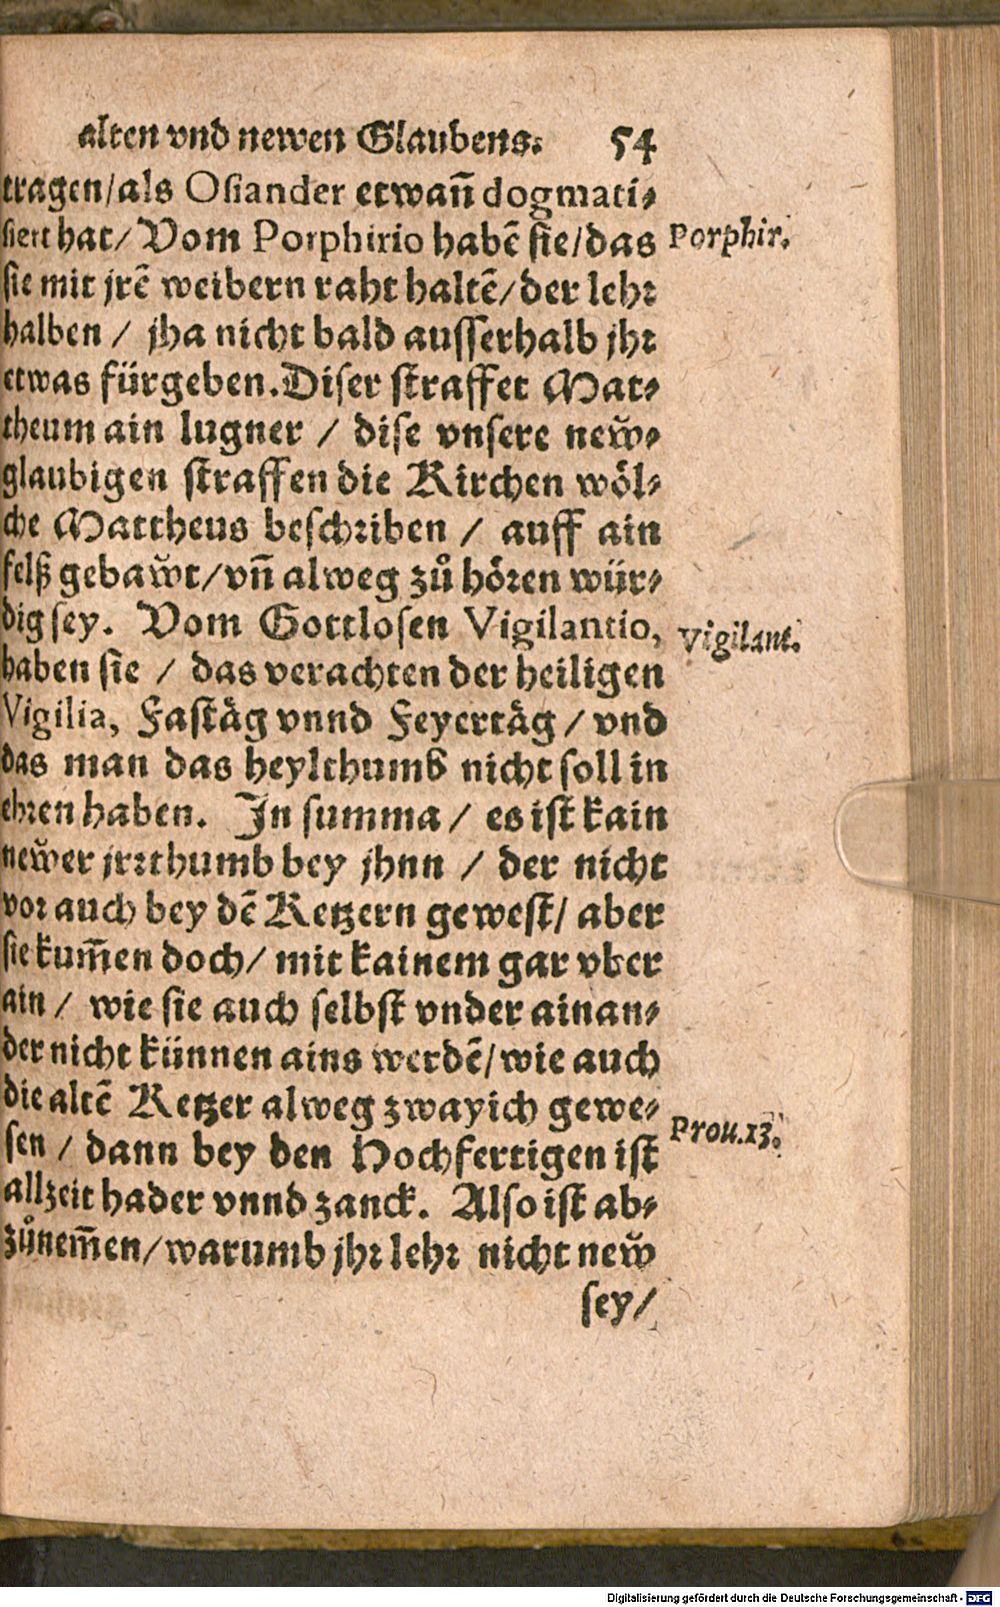 alten vnd newen Glaubens. 54
tragen/als Osiander etwañ dogmati-
siert hat/ Vom Porphirio habẽ sie/das
Porphir.
sie mit jrẽ weibern raht haltẽ/der lehr
halben / jha nicht bald ausserhalb jhr
etwas fürgeben. Diser straffet Mat-
theum ain lugner / dise vnsere new̆-
glaubigen straffen die Kirchen wöl-
che Mattheus beschriben / auff ain
felß gebaw̆t/vñ alweg zů hören wür-
dig sey. Vom Gottlosen Vigilantio,
Vigilant.
haben sie / das verachten der heiligen
Vigilia, Fastäg vnnd Feyertäg / vnd
das man das heylthumb nicht soll in
ehren haben. In summa / es ist kain
new̆er jrrthumb bey jhnn / der nicht
vor auch bey dẽ Ketzern gewest/ aber
sie kum̃en doch/ mit kainem gar vber
ain / wie sie auch selbst vnder ainan-
der nicht künnen ains werdẽ/wie auch
die altẽ Ketzer alweg zwayich gewe-
Prou.13.
sen / dann bey den Hochfertigen ist
allzeit hader vnnd zanck. Also ist ab-
zůnem̃en/warumb jhr lehr nicht new̆
sey/
Digitalisierung gefördert durch die Deutsche Forschungsgemeinschaft - DFG